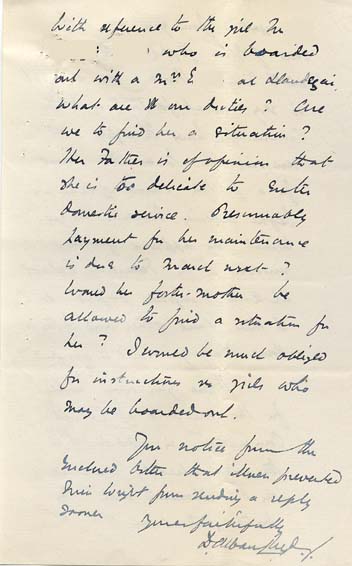 With reference to the girl
who is boarded
out with a Mrs E at
what are our duties? Are
we to find her a situation?
Her Father is of opinion that
she is too delicate to enter
domestic service. Presumably
payment for her maintenance
is due to March next?
Would her foster-mother be
allowed to find a situation for
her? I would be much obliged
for instructions re girls who
may be boarded out.
You notice from the
enclosed letter that illness prevented
Miss Wright from sending a reply
sooner Yours faithfully